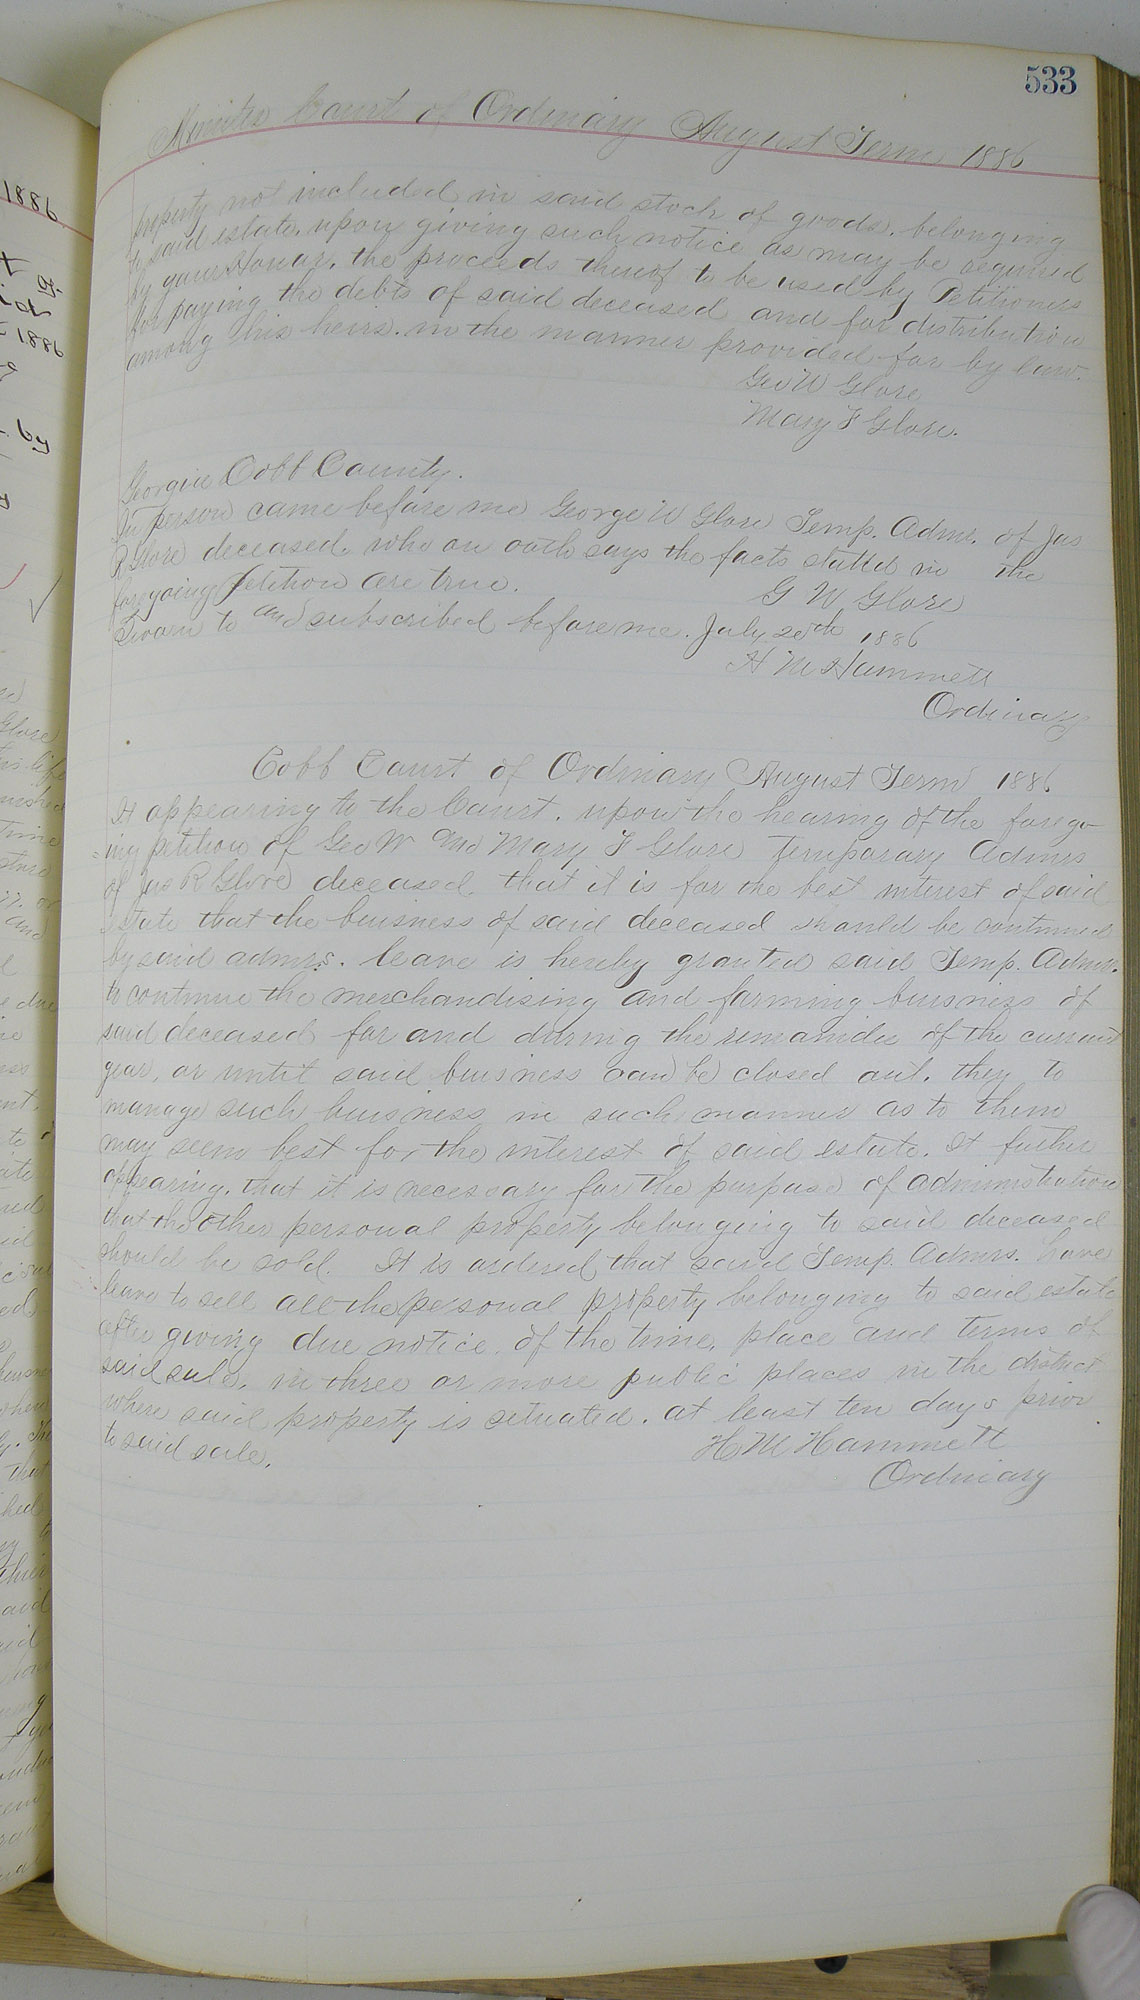 533
Minutes Court of Ordinary August Term 1886
property not included in said stock of goods, belonging
to said estate, upon giving such notice as may be required
by your Honor, the proceeds thereof to be used by Petitioners
for paying the debts of said deceased and for distribution
among his heirs in the manner provided for by law.
Geo W Glore
Mary F Glore.
Georgia Cobb County.
In person came before me George W Glore Temp. Admr. of Jas
R Glore deceased, who on oath says the facts stated in the
foregoing Petition are true.
G W Glore
Sworn to and subscribed before me, July 20th 1886
H M Hammett
Ordinary
Cobb Court of Ordinary August Term 1886
It appearing to the Court, upon the hearing of the forego-
ing petition of Geo W and Mary F Glore Temporary Admrs
of Jas R Glore deceased, that it is for the best interest of said
estate that the buisness of said deceased should be continued
by said admrs. leave is hereby granted said Temp. Admrs.
to continue the merchandising and farming buisness of
said deceased for and during the remainder of the current
year, or until said buisness can be closed out, they to
manage such buisness in such manner as to them
may seem best for the interest of said estate. It further
appearing, that it is necessary for the purpose of administration
that the other personal property belonging to said deceased
should be sold. It is ordered that said Temp. Admrs. have
leave to sell all the personal property belonging to said estate
after giving due notice, of the time, place and terms of
said sale, in three or more public places in the district
where said property is situated, at least ten days prior
to said sale.
H M Hammett
Ordinary
1886
1886
by